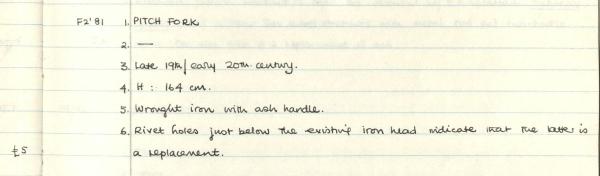 F2'81 1. PITCH FORK
2. —
3. Late 19th/early 20th century.
4. H : 164 cm.
5. Wrought iron with ash handle.
6. Rivet holes just below the existing iron head indicate that the latter is
£5 a replacement.